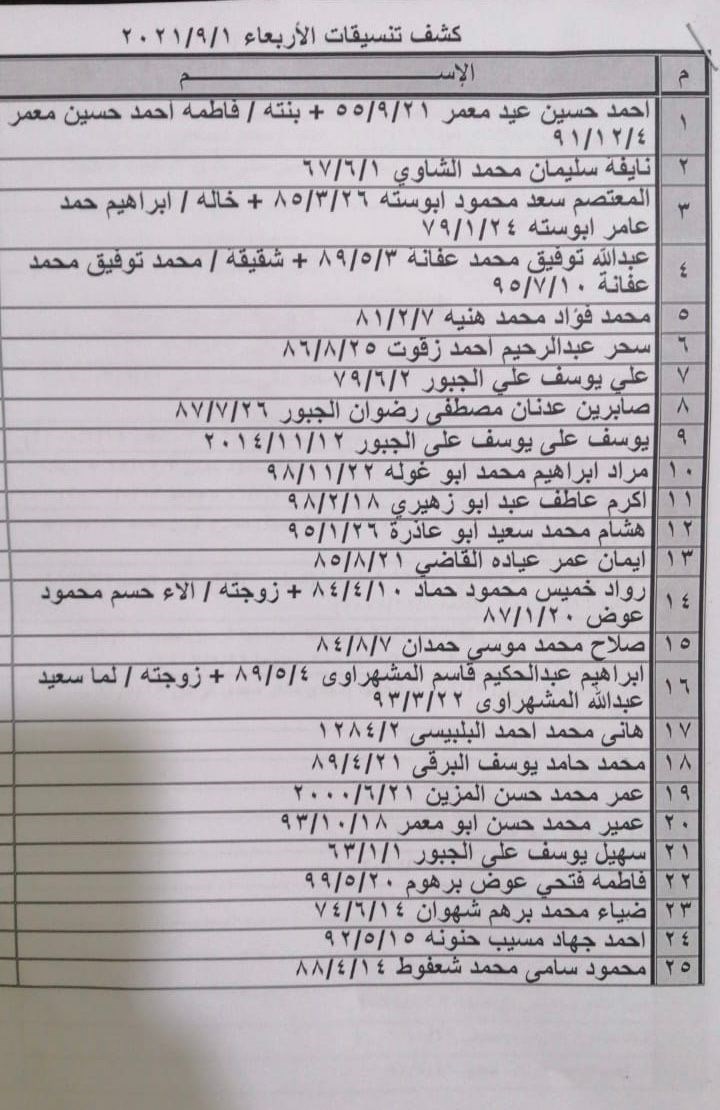 كشف تنسيقات الأربعاء ٢٠٢١/٩/١
م الإســـــــــــــــــــــم
١ احمد حسين عيد معمر ٥٥/٩/٢١ + بنته / فاطمه احمد حسين معمر
٩١/١٢/٤
٢ نايفة سليمان محمد الشاوي ٦٧/٦/١
٣ المعتصم سعد محمود ابوسته ٨٥/٣/٢٦ + خاله / ابراهيم حمد
عامر ابوسته ٧٩/١/٢٤
٤ عبدالله توفيق محمد عفانة ٨٩/٥/٣ + شقيقة / محمد توفيق محمد
عفانة ٩٥/٧/١٠
٥ محمد فؤاد محمد هنيه ٨١/٢/٧
٦ سحر عبدالرحيم احمد زقوت ٨٦/٨/٢٥
٧ علي يوسف علي الجبور ٧٩/٦/٢
٨ صابرين عدنان مصطفى رضوان الجبور ٨٧/٧/٢٦
٩ يوسف على يوسف على الجبور ٢٠١٤/١١/١٢
١٠ مراد ابراهيم محمد ابو غوله ٩٨/١١/٢٢
١١ اكرم عاطف عبد ابو زهيري ٩٨/٢/١٨
١٢ هشام محمد سعيد ابو عاذرة ٩٥/١/٢٦
١٣ ايمان عمر عياده القاضي ٨٥/٨/٢١
١٤ رواد خميس محمود حماد ٨٤/٤/١٠ + زوجته / الاء حسم محمود
عوض ٨٧/١/٢٠
١٥ صلاح محمد موسي حمدان ٨٤/٨/٧
١٦ ابراهيم عبدالحكيم قاسم المشهراوى ٨٩/٥/٤ + زوجته / لما سعيد
عبدالله المشهراوى ٩٣/٣/٢٢
١٧ هانى محمد احمد البلبيسى ١٢٨٤/٢
١٨ محمد حامد يوسف البرقى ٨٩/٤/٢١
١٩ عمر محمد حسن المزين ٢٠٠٠/٦/٢١
٢٠ عمير محمد حسن ابو معمر ٩٣/١٠/١٨
٢١ سهيل يوسف على الجبور ٦٣/١/١
٢٢ فاطمه فتحي عوض برهوم ٩٩/٥/٢٠
٢٣ ضياء محمد برهم شهوان ٧٤/٦/١٤
٢٤ احمد جهاد مسيب حنونه ٩٢/٥/١٥
٢٥ محمود سامى محمد شعفوط ٨٨/٤/١٤